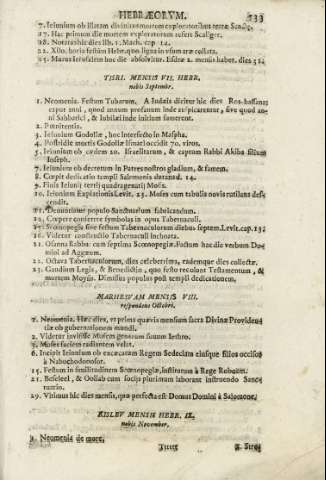 HEBRÆORVM. 533
7. Ieiunium ob illatam divinitus mortem exploratoribus terræ Sanctæ.
27. Hac primum die mortem exploratorum refert Scaliger.
28. Notatus hic dies lib. 1. Mach. cap. 14.
22. Xilo. horia festum Hebr. quo ligna in usum aræ collata.
25. Mazus Ierusalem hoc die absolvitur. Esdræ 2. menis habet. dies 52.
TISRI. MENSIS VII. HEBR.
nobis Septembr.
1. Neomenia. Festum Tubarum. A Iudæis dicitur hic dies Ros-hassana
caput anni, quod annum profanum inde auspicarentur, sive quod an-
ni Sabbatici, & Iubilæi inde initium sumerent.
2. Pœnitentia.
3. Ieiunium Godoliæ, hoc interfecto in Maspha.
4. Postridie mortis Godoliæ Ismael occidit 70. viros.
5. Ieiunium ob cædem 20. Israelitarum, & captum Rabbi Akiba filium
Ioseph.
7. Ieiunium ob decretum in Patres nostros gladium, & famem.
8. Cœpit dedicatio templi Salemonis durans d. 14.
9. Finis Ieiunii tertii quadragenarii Mosis.
10. Ieiunium Expiationis Levit. 23. Moses cum tabulis novis rutilans des-
cendit.
11. Denuntiatur populo Sanctuarium fabricandum.
12. Cœpere conferre symbolas in opus Tabernaculi.
15. Scœnopegia sive festum Tabernaculorum diebus septem. Levit. cap. 13.
16. Videtur constructio Tabernaculi inchoata.
21. Osanna Rabba: cum septima Scœnopegiæ. Festum hac die verbum Do-
mini ad Aggæum.
22. Octava Tabernaculorum, dies celeberrima, eademque dies collectæ.
23. Gaudium Legis, & Benedictio, quo festo recolunt Testamentum, &
mortem Moysis. Dimissus populus post templi dedicationem.
MARHESVAN MENSIS VIII.
respondens Octobri.
1. Neomenia. Hæc dies, ut prima quævis mensium sacra Divinæ Providen-
tiæ ob gubernationem mundi.
2. Videtur invisisse Mosem generum suum Iethro.
5. Moses faciem radiantem velat.
6. Incipit Ieiunium ob excæcatum Regem Sedeciam eiusque filios occisos
à Nabuchodonosor.
15. Festum in similitudinem Scœnopegiæ, institutum à Rege Roboam.
21. Beseleel, & Ooliab cum sociis plurimum laborant instruendo Sanc-
tuario.
29. Vltimus hic dies mensis, quo perfecta est Domus Domini à Salomone.
KISLEV MENSIS HEBR. IX.
nobis November.
1. Neomenia de more.